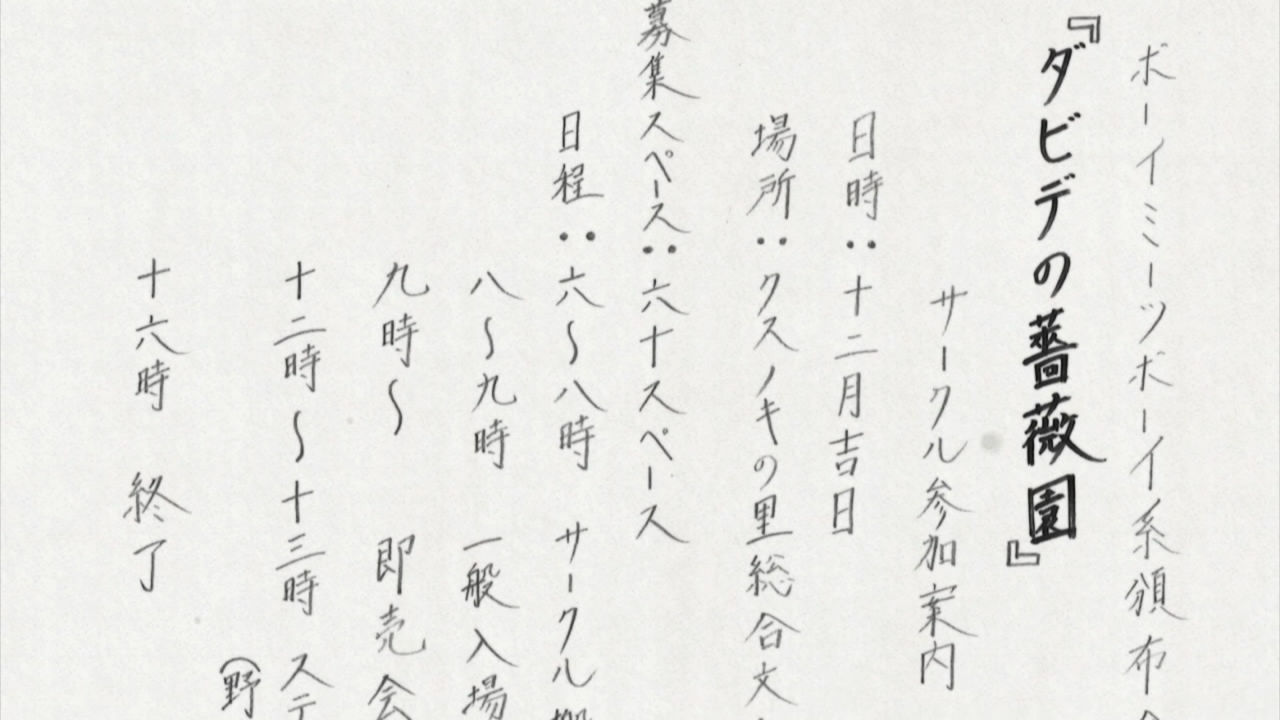 ボーイミーツボーイ系頒布会
『ダビデの薔薇園』
サークル参加案内
日時：十二月吉日
場所：クスノキの里総合文
募集スペース：六十スペース
日程：六〜八時 サークル搬
八〜九時 一般入場
九時〜 即売会
十二時〜十三時 ステ
（野
十六時 終了